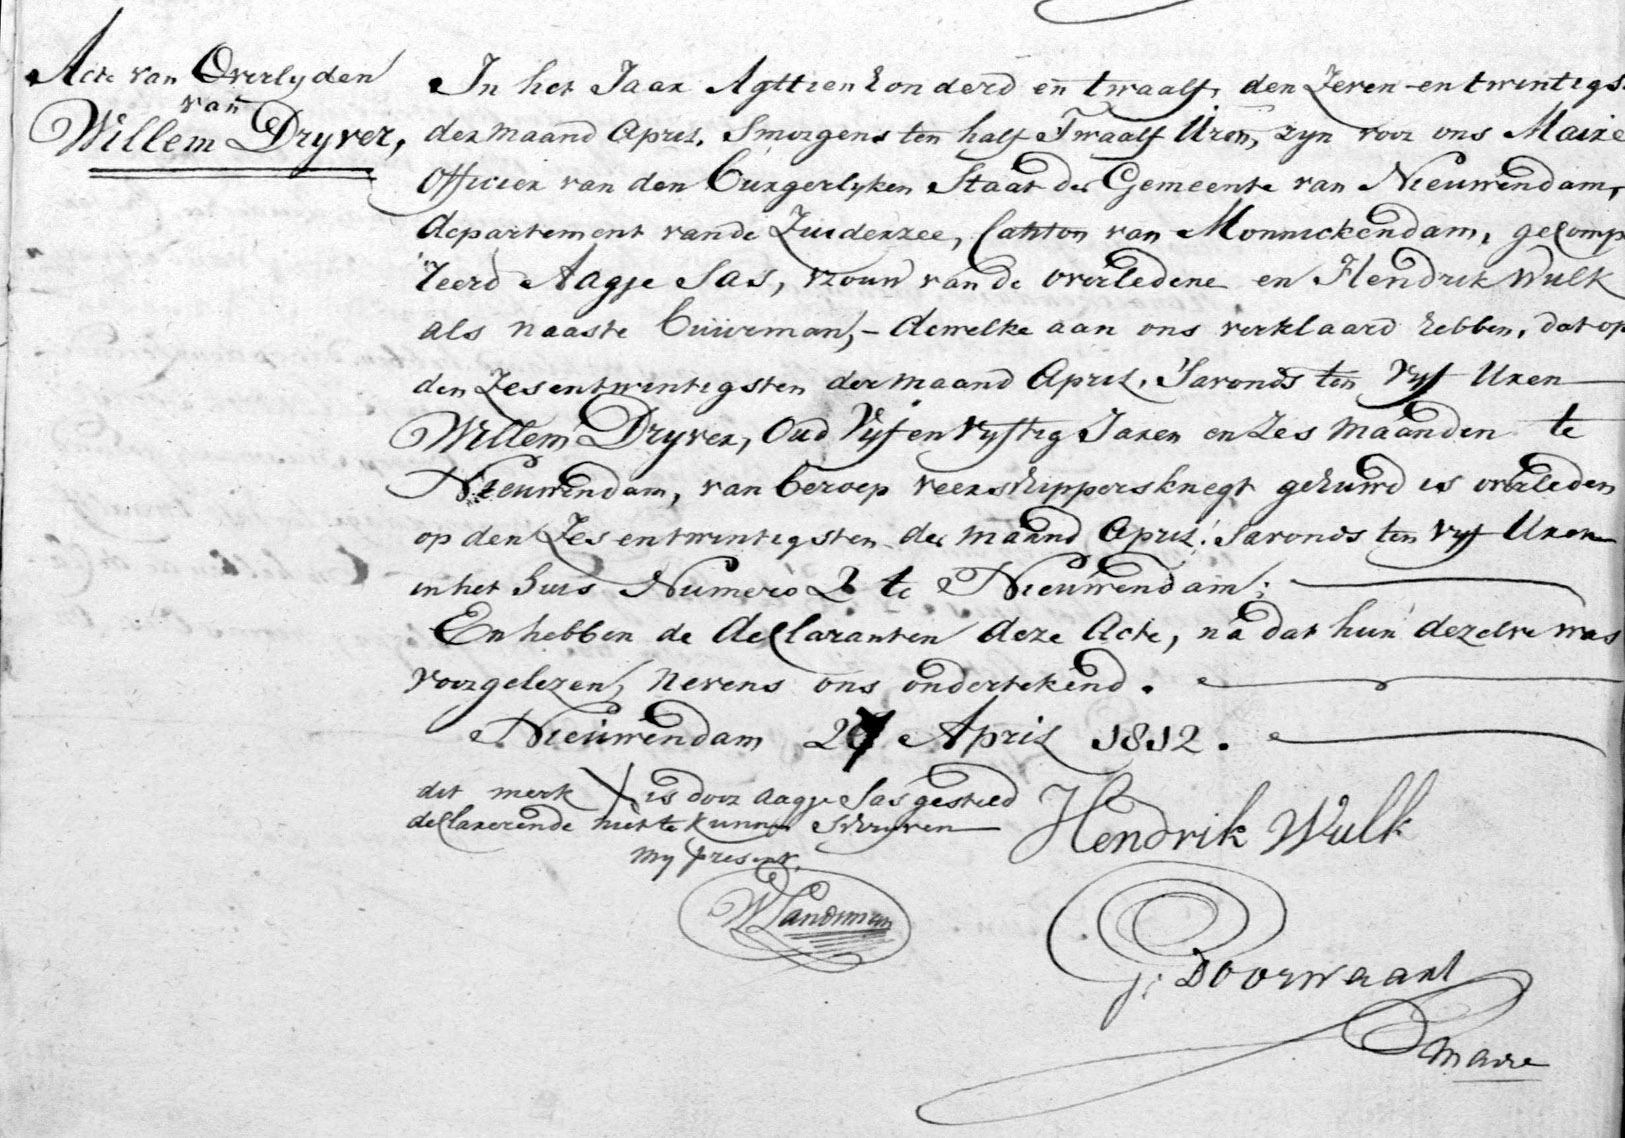 Acte van Overlyden
van
Willem Dryver,
In het Jaar Agttien honderd en twaalf, den Zeven-entwintigs
der maand April, Smorgens ten half Twaalf Uren, zyn voor ons Maire
Officier van den Burgerlyken Staat der Gemeente van Nieuwendam,
departement van de Zuiderzee, Canton van Monnickendam, gecomp
leerd Aagje Sas, vrouw van de overledene en Hendrik Wulk
als naaste buurman, - dewelke aan ons verklaard hebben, dat op
den Zesentwintigsten der maand April, Savonds ten Vyf Uren
Willem Dryver, Oud Vyfenvyftig Jaren en zes maanden te
Nieuwendam, van beroep veerschippersknegt gehuwd is overleden
op den Zesentwintigsten der maand April Savonds ten vyf Uren
in het huis Numero 2 te Nieuwendam;
En hebben de declaranten deze Acte, na dat hun dezelve was
voorgelezen, nevens ons ondertekend.
Nieuwendam 27 April 1812.
dit merk X is door Aagje Sas gesteld
declarerende niet te kunnen schryven
my present.
W Landman
Hendrik Wulk
Doorwaart
maire